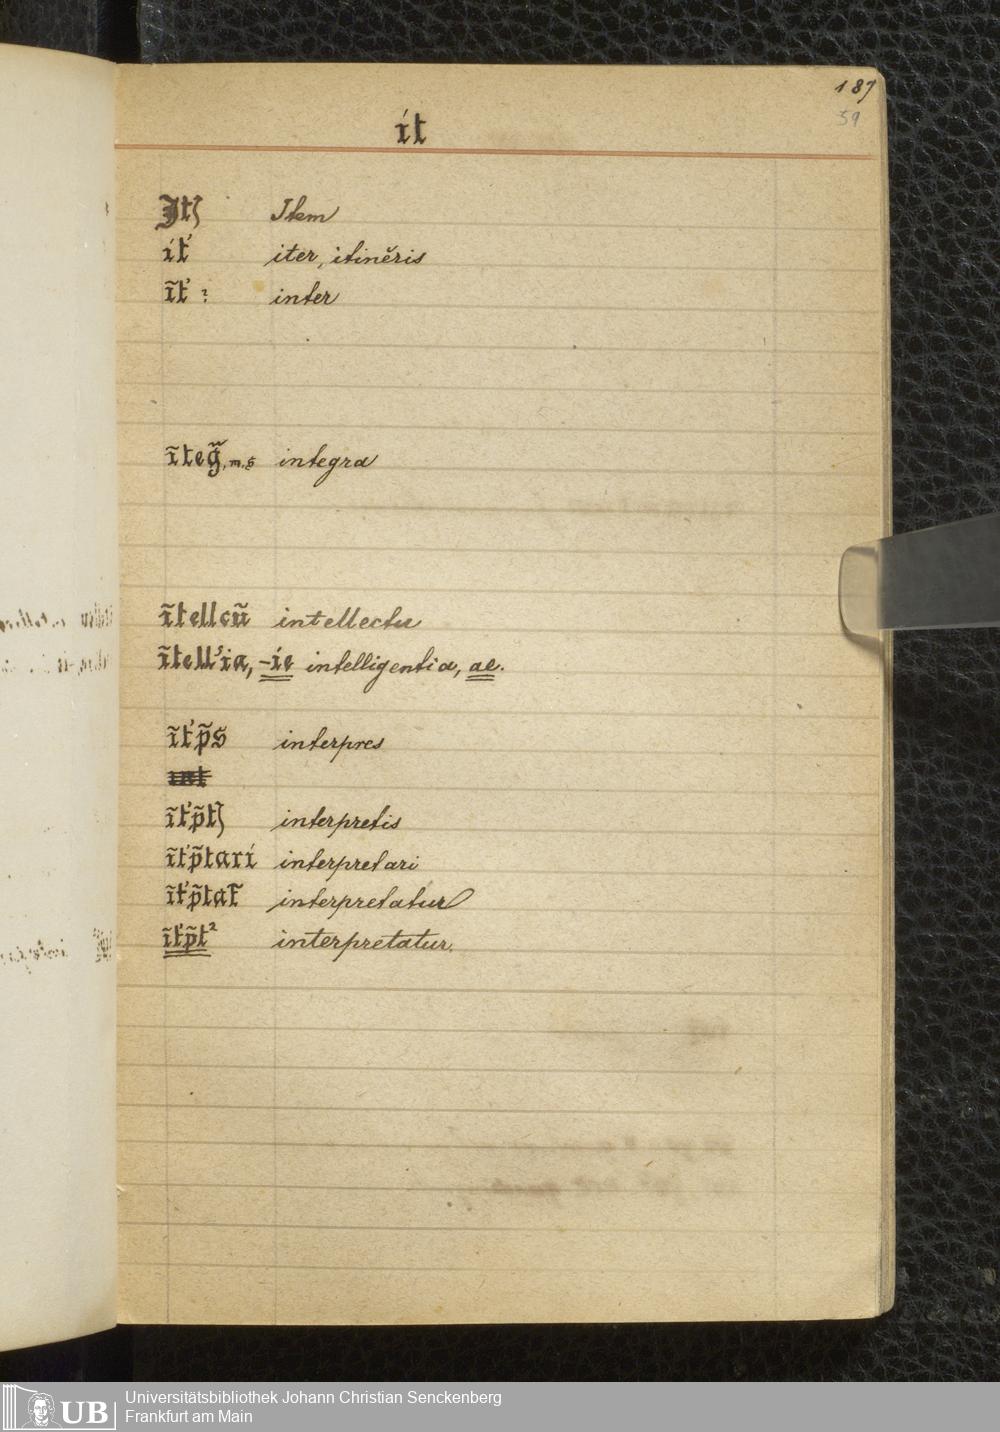 187
59
ít
Itꝫ Item
ít' iter, itinĕris
ĩt' ? inter
ĩteg̃, m. g integra
ĩtellcũ intellectu
ĩtell'ia, -íe intelligentia, ae.
ĩt'p̃s interpres
int
ĩt'p̃tꝫ interpretis
ĩt'p̃tarí interpretari
ĩt'p̃tat̄ interpretatur
ĩt'p̃t² interpretatur.
UB
Universitätsbibliothek Johann Christian Senckenberg
Frankfurt am Main